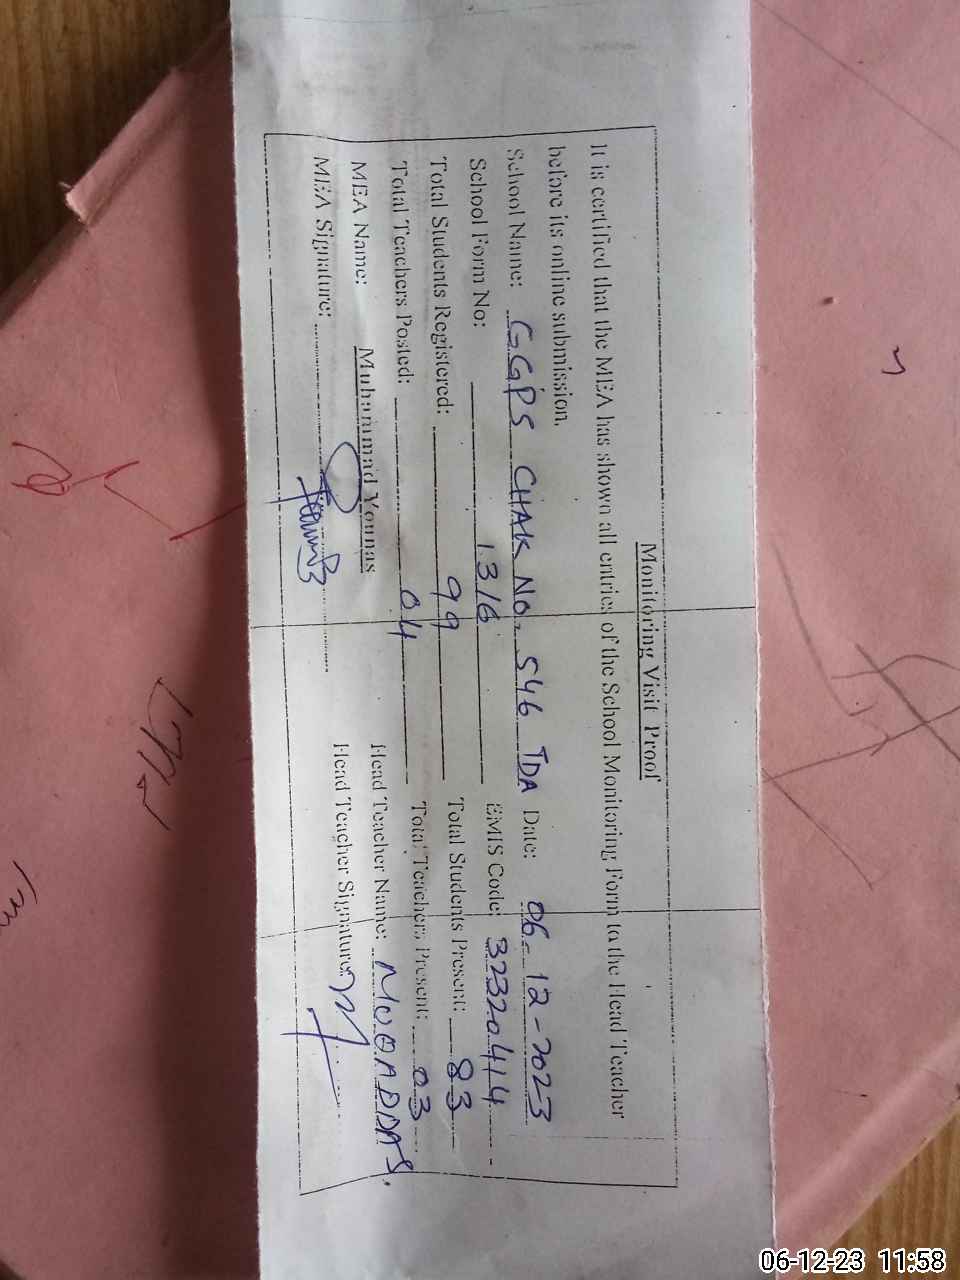 Monitoring Visit Proof
It is certified that the MEA has shown all entries of the School Monitoring Form to the Head Teacher
before its online submission.
School Name: GGPS CHAK NO. 546 TDA Date: 06-12-2023
School Form No: 1316 EMIS Code: 32320414
Total Students Registered: 99 Total Students Present: 83
Total Teachers Posted: 04 Total Teachers Present: 03
MEA Name: Muhammad Younas Head Teacher Name: MUQADDAS.
MEA Signature: Head Teacher Signature:
06-12-23 11:58